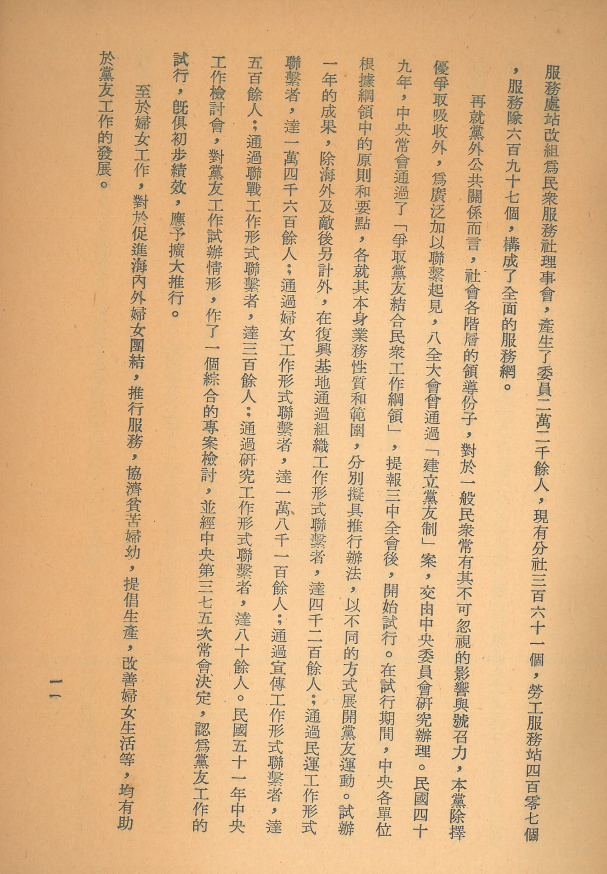 服務處站改組爲民衆服務社理事會，產生了委員二萬二千餘人，現有分社三百六十一個，勞工服務站四百零七個
，服務隊六百九十七個，構成了全面的服務網。
再就黨外公共關係而言，社會各階層的領導份子，對於一般民衆常有其不可忽視的影響與號召力，本黨除擇
優爭取吸收外，爲廣泛加以聯繫起見，八全大會曾通過「建立黨友制」案，交由中央委員會研究辦理。民國四十
九年，中央常會通過了「爭取黨友結合民衆工作綱領」，提報三中全會後，開始試行。在試行期間，中央各單位
根據綱領中的原則和要點，各就其本身業務性質和範圍，分別擬具推行辦法，以不同的方式展開黨友運動。試辦
一年的成果，除海外及敵後另計外，在復興基地通過組織工作形式聯繫者，達四千二百餘人；通過民運工作形式
聯繫者，達一萬四千六百餘人；通過婦女工作形式聯繫者，達一萬八千一百餘人；通過宣傳工作形式聯繫者，達
五百餘人；通過聯戰工作形式聯繫者，達三百餘人；通過研究工作形式聯繫者，達八十餘人。民國五十一年中央
工作檢討會，對黨友工作試辦情形，作了一個綜合的專案檢討，並經中央第三七五次常會決定，認爲黨友工作的
試行，旣俱初步績效，應予擴大推行。
至於婦女工作，對於促進海內外婦女團結，推行服務，協濟貧苦婦幼，提倡生產，改善婦女生活等，均有助
於黨友工作的發展。
一一